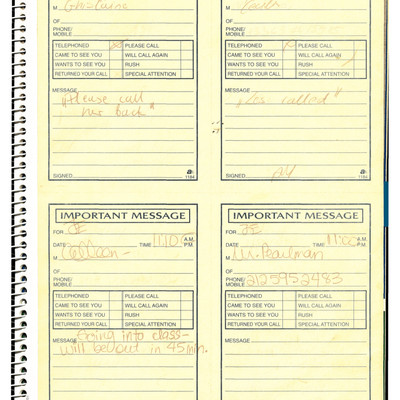 M Ghislaine
OF
PHONE/
MOBILE
TELEPHONED PLEASE CALL
CAME TO SEE YOU WILL CALL AGAIN
WANTS TO SEE YOU RUSH
RETURNED YOUR CALL SPECIAL ATTENTION
MESSAGE
"Please call
her back"
SIGNED 1184
M
OF
PHONE/
MOBILE
TELEPHONED PLEASE CALL
CAME TO SEE YOU WILL CALL AGAIN
WANTS TO SEE YOU RUSH
RETURNED YOUR CALL SPECIAL ATTENTION
MESSAGE
called"
SIGNED 1184
IMPORTANT MESSAGE
FOR JE
DATE TIME 11:05 A.M.
P.M.
M Colleen-
OF
PHONE/
MOBILE
TELEPHONED PLEASE CALL
CAME TO SEE YOU WILL CALL AGAIN
WANTS TO SEE YOU RUSH
RETURNED YOUR CALL SPECIAL ATTENTION
MESSAGE Going into class-
will be out in 45 min.
IMPORTANT MESSAGE
FOR JE
DATE TIME 11:00 A.M.
P.M.
M Mr. Pearlman
OF
PHONE/
MOBILE 2125952483
TELEPHONED PLEASE CALL
CAME TO SEE YOU WILL CALL AGAIN
WANTS TO SEE YOU RUSH
RETURNED YOUR CALL SPECIAL ATTENTION
MESSAGE